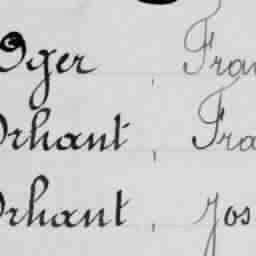 Oger, Fran
Orhant, Fra
Orhant, Jos